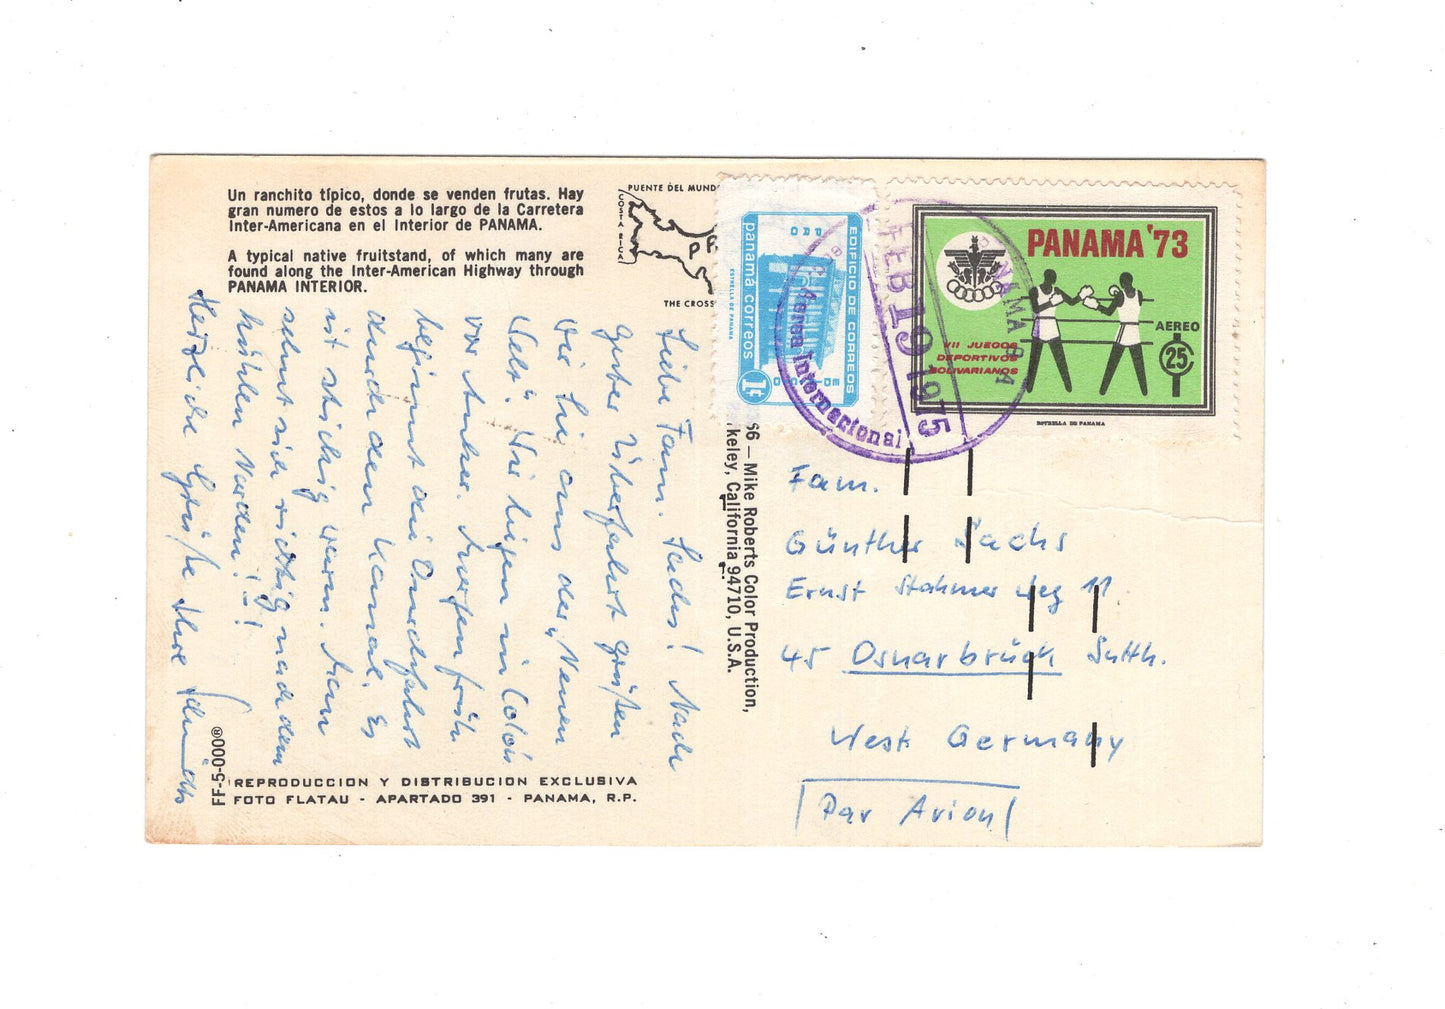 Un ranchito típico, donde se venden frutas. Hay
gran numero de estos a lo largo de la Carretera
Inter-Americana en el Interior de PANAMA.
A typical native fruitstand, of which many are
found along the Inter-American Highway through
PANAMA INTERIOR.
PUENTE DEL MUND
COSTA RICA
P
THE CROSS
Liebe Fam. Sachs! Nach
guter Überfahrt grüßen
wir Sie aus der „Neuen
Welt“. Wir liegen in Colón
vor Anker. Morgen früh
beginnt die Durchfahrt
durch den Kanal. Es
ist stickig warm. Man
sehnt sich richtig nach dem
kühlen Norden!!
Herzliche Grüße Ihre Schmidts
FF-5-000®
REPRODUCCION Y DISTRIBUCION EXCLUSIVA
FOTO FLATAU - APARTADO 391 - PANAMA, R.P.
66 — Mike Roberts Color Production,
keley, California 94710, U.S.A.
EDIFICIO DE CORREOS
PRO
panamá correos
1c
ESTRELLA DE PANAMA
PANAMA '73
AEREO
25
VII JUEGOS
DEPORTIVOS
BOLIVARIANOS
ESTRELLA DE PANAMA
PANAMA
FEB 19 1975
Aerea Internacional
Fam.
Günther Sachs
Ernst Stahmer Weg 11
45 Osnarbrück Sutth.
West Germany
Par Avion